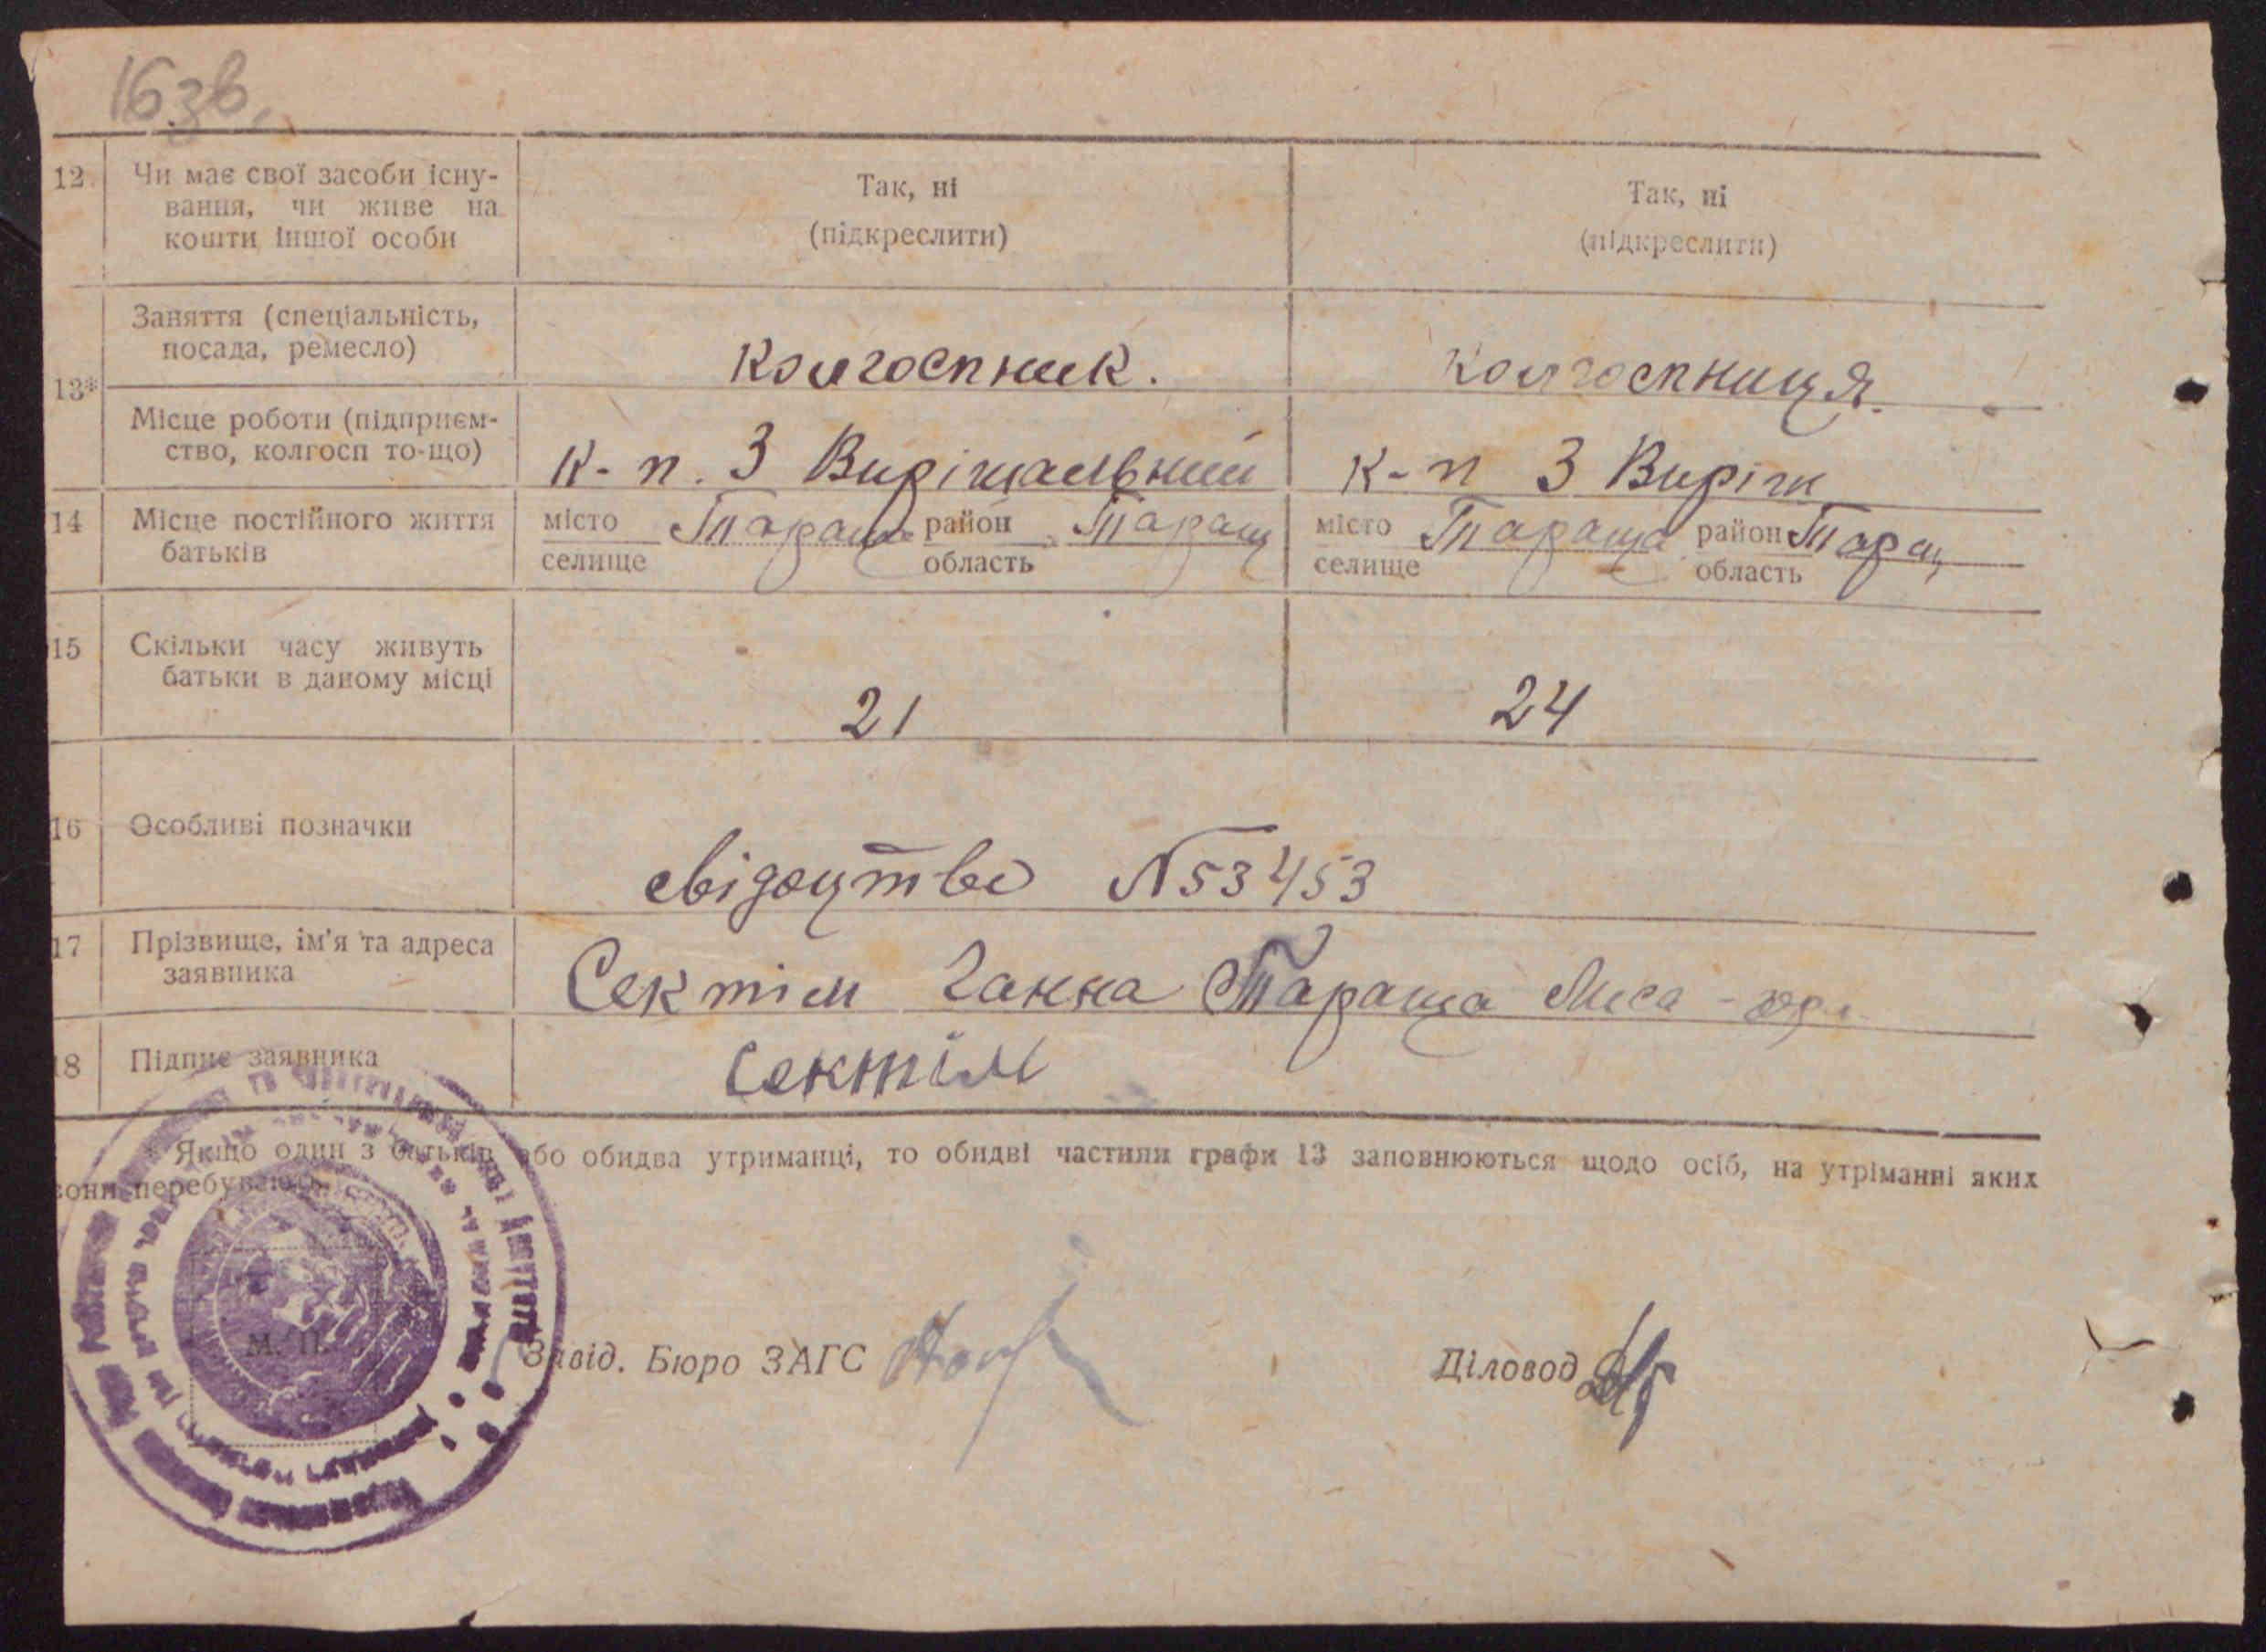 16 зв.
12 Чи має свої засоби існу-
вання, чи живе на
кошти іншої особи
Так, ні
(підкреслити)
Так, ні
(підкреслити)
13*
Заняття (спеціальність,
посада, ремесло)
колгоспник.
колгоспниця.
Місце роботи (підприєм-
ство, колгосп то-що)
к-п. 3 Вирішальний
к-п 3 Виріш
14 Місце постійного життя
батьків
місто Тараща район Таращ
селище область
місто Тараща район Таращ
селище область
15 Скільки часу живуть
батьки в даному місці
21
24
16 Особливі позначки
свідоцтво N53453
17 Прізвище, ім'я та адреса
заявника
Сектім Ганна Тараща Лиса -
18 Підпис заявника
Сектім
* Якщо один з батьків або обидва утриманці, то обидві частини графи 13 заповнюються щодо осіб, на утріманні яких
вони перебувають.
М. П.
Завід. Бюро ЗАГС
Діловод